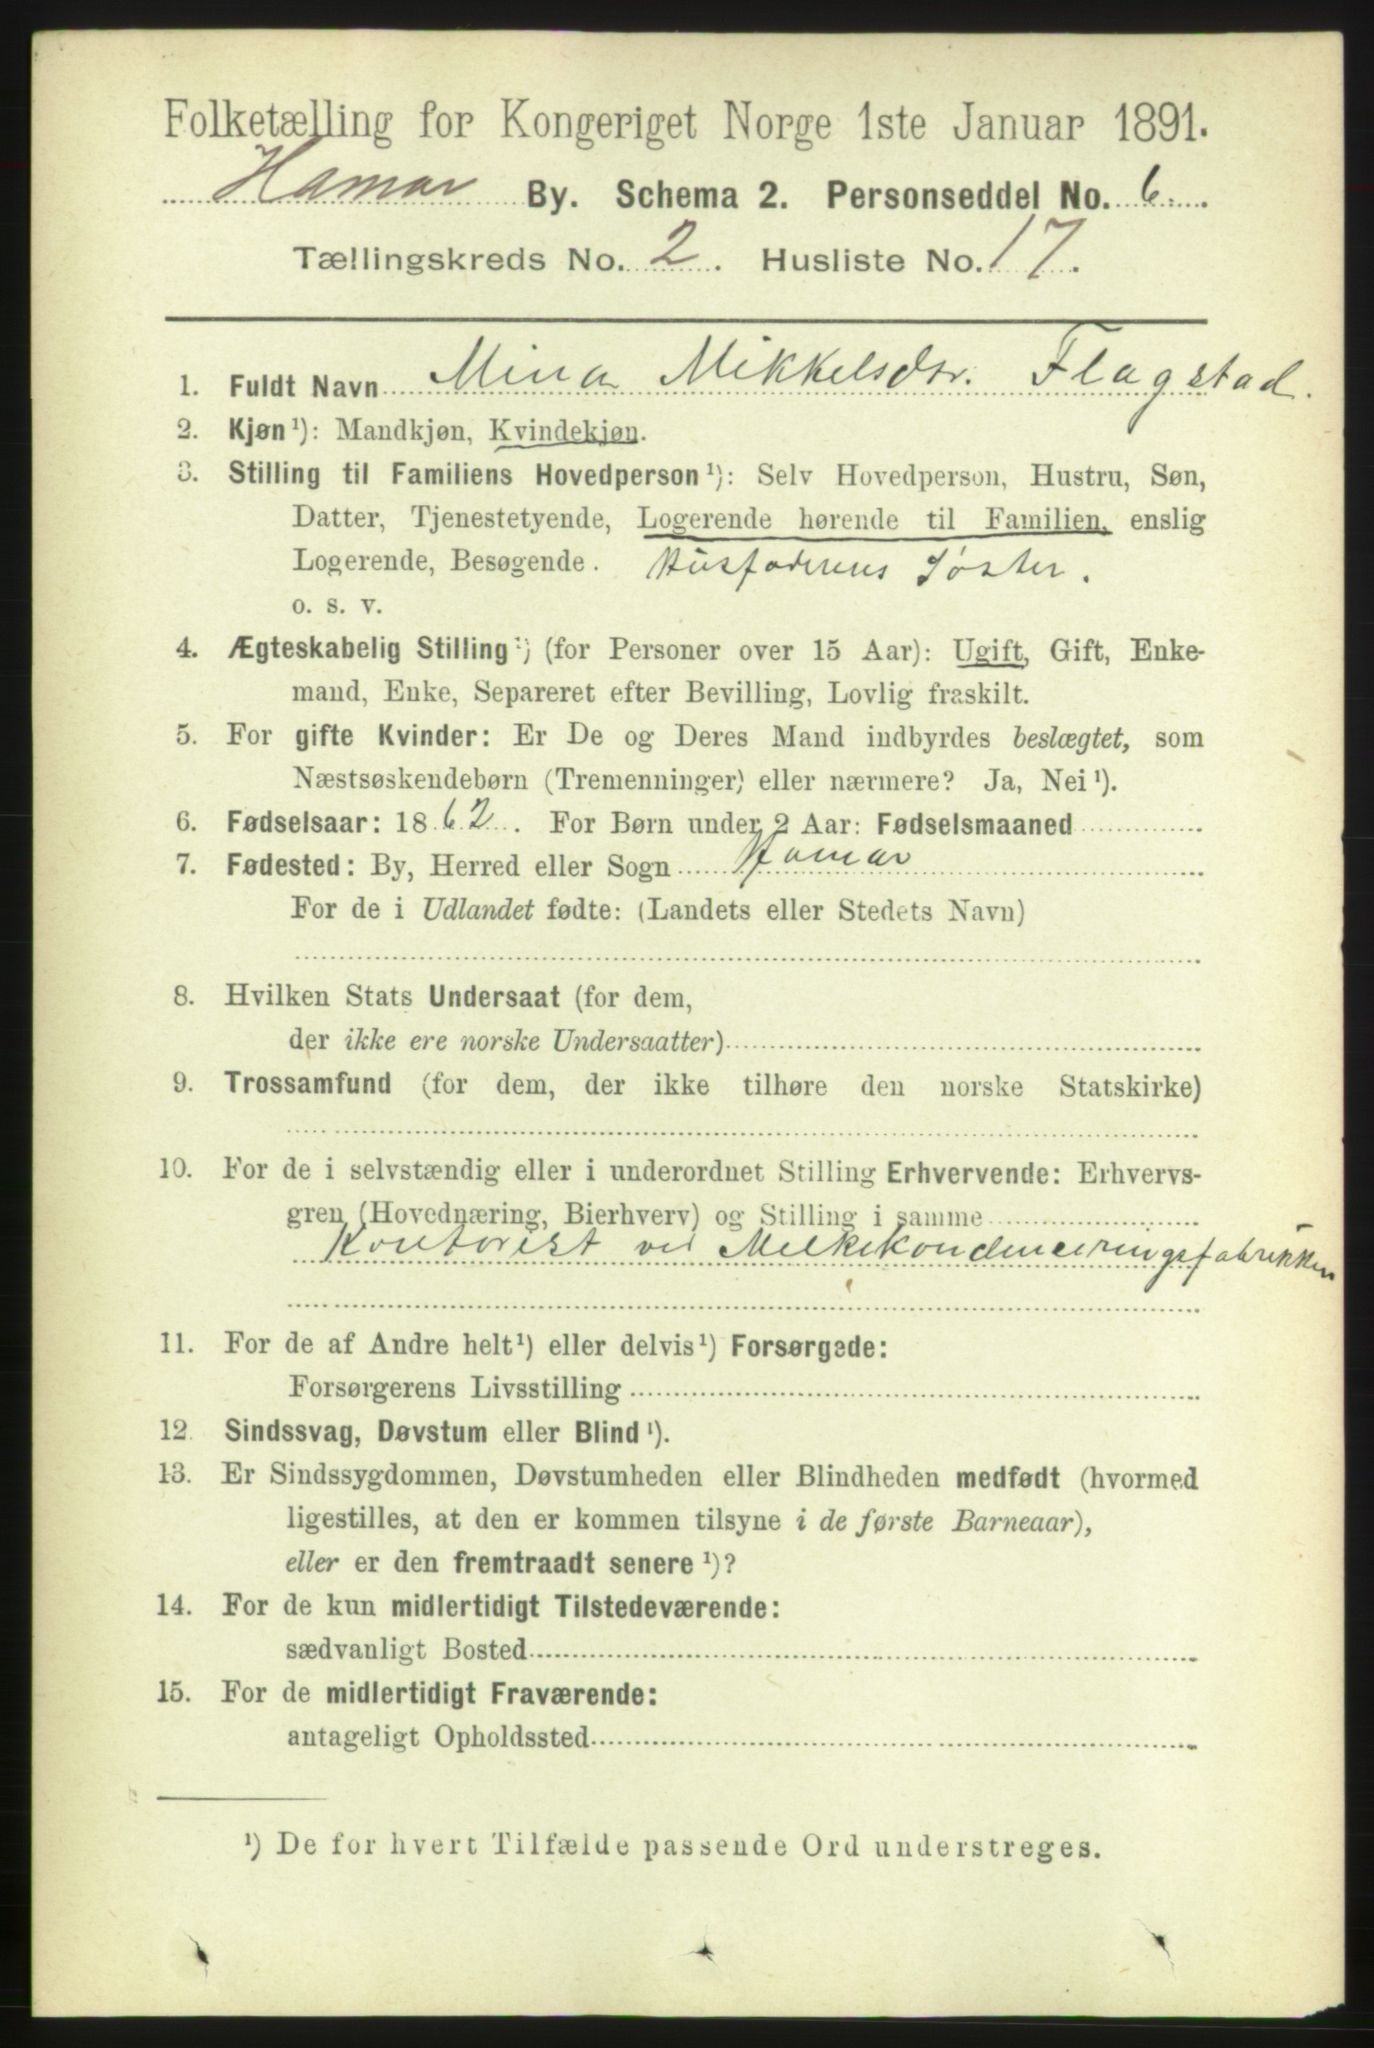 Folketælling for Kongeriget Norge 1ste Januar 1891.
Hamar By. Schema 2. Personseddel No. 6.
Tællingskreds No. 2. Husliste No. 17.
1. Fuldt Navn Mina Mikkelsdtr. Flagstad.
2. Kjøn¹): Mandkjøn, Kvindekjøn.
3. Stilling til Familiens Hovedperson¹): Selv Hovedperson, Hustru, Søn,
Datter, Tjenestetyende, Logerende hørende til Familien, enslig
Logerende, Besøgende. Husfaderens Søster.
o. s. v.
4. Ægteskabelig Stilling¹) (for Personer over 15 Aar): Ugift, Gift, Enke-
mand, Enke, Separeret efter Bevilling, Lovlig fraskilt.
5. For gifte Kvinder: Er De og Deres Mand indbyrdes beslægtet, som
Næstsøskendebørn (Tremenninger) eller nærmere? Ja, Nei¹).
6. Fødselsaar: 1862. For Børn under 2 Aar: Fødselsmaaned
7. Fødested: By, Herred eller Sogn Hamar
For de i Udlandet fødte: (Landets eller Stedets Navn)
8. Hvilken Stats Undersaat (for dem,
der ikke ere norske Undersaatter)
9. Trossamfund (for dem, der ikke tilhøre den norske Statskirke)
10. For de i selvstændig eller i underordnet Stilling Erhvervende: Erhvervs-
gren (Hovednæring, Bierhverv) og Stilling i samme
Kontorist ved Melkekondenceringsfabrikken
11. For de af Andre helt¹) eller delvis¹) Forsørgede:
Forsørgerens Livsstilling
12. Sindssvag, Døvstum eller Blind¹).
13. Er Sindssygdommen, Døvstumheden eller Blindheden medfødt (hvormed
ligestilles, at den er kommen tilsyne i de første Barneaar),
eller er den fremtraadt senere¹)?
14. For de kun midlertidigt Tilstedeværende:
sædvanligt Bosted
15. For de midlertidigt Fraværende:
antageligt Opholdssted
¹) De for hvert Tilfælde passende Ord understreges.